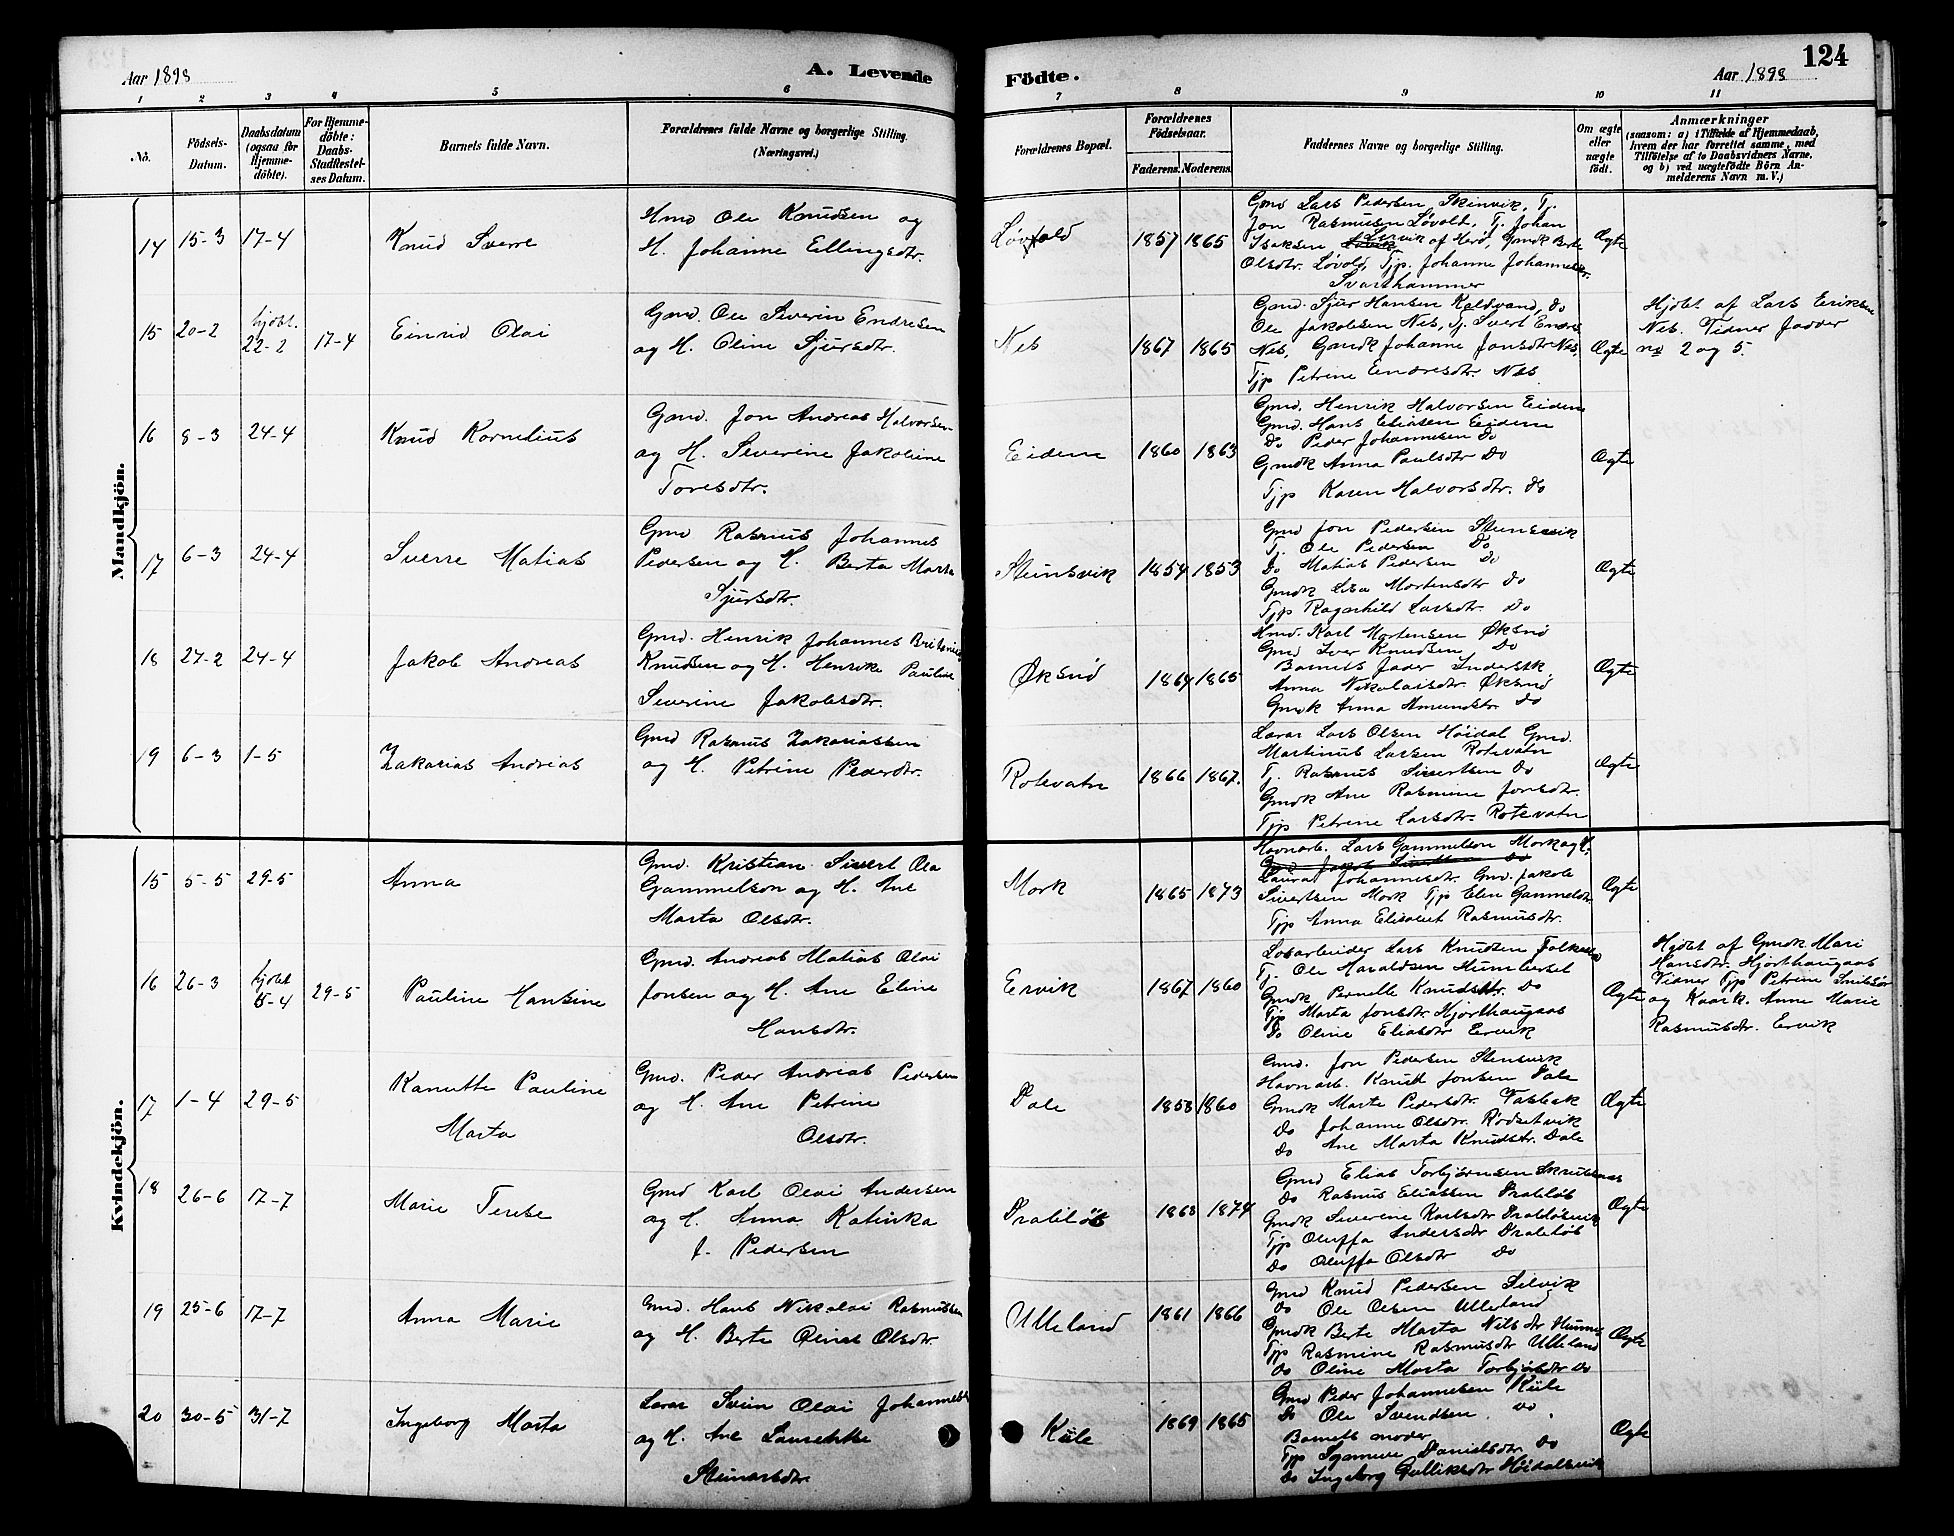 Aar 1898
A. Levende
Födte.
Aar 1898
124
1 2 3 4 5 6 7 8 9 10 11
No.
Födsels-Datum.
Daabsdatum (ogsaa for Hjemme-döbte).
For Hjemme-döbte: Daabs-Stadfestel-ses Datum.
Barnets fulde Navn.
Forældrenes fulde Navne og borgerlige Stilling. (Næringsvei.)
Forældrenes Bopæl.
Forældrenes Födselsaar.
Faderens. Moderens.
Faddernes Navne og borgerlige Stilling.
Om ægte eller uægte födt.
Anmærkninger
(saasom: a) i Tilfælde af Hjemmedaab, hvem der har forrettet samme, med Tilföielse af to Daabsvidners Navne, og b) ved uægtefödte Börn An-melderens Navn m. V.)
Mandkjön.
14 15-3 17-4 Knud Sverre
Hmd Ole Knudsen og
H. Johanne Ellingsdtr.
Løvold 1857 1865
Gmd Lars Pedersen, Skinvik, Tj.
Jon Rasmussen Løvold, Tj. Johan
Isaksen Lervik af Herø, Gmdk Berte
Olsdtr. Løvold, Tjp. Johanne Johannesdtr.
Svarthammer
Ægte
15 20-2 hjdbt. 22-2 17-4 Einrid Olai
Gmd. Ole Severin Endresen
og H. Oline Sjursdtr.
Nes 1867 1865
Gmd. Sjur Hansen Kaldvand, do
Ole Jakobsen Nes, Tj. Sivert Endres
Nes, Gmdk Johanne Jonsdtr Nes,
Tjp Petrine Endresdtr. Nes
Ægte
Hjdbt af Lars Eriksen
Nes. Vidner Fadder
no 2 og 5.
16 8-3 24-4 Knud Kornelius
Gmd. Jon Andreas Halvorsen
og H. Severine Jakobine
Toresdtr.
Eidem 1860 1863
Gmd. Henrik Halvorsen Eidem
Gmd. Hans Eliasen Eidem
Do Peder Johannesen Do
Gmdk Anna Paulsdtr Do
Tjp Karen Halvorsdtr. Do
Ægte
17 6-3 24-4 Sverre Matias
Gmd Rasmus Johannes
Pedersen og H. Berta Marta
Sjursdtr.
Steinsvik 1854 1853
Gmd Jon Pedersen Steinsvik
Tj. Ole Pedersen Do
Do Matias Pedersen Do
Gmdk Lisa Mortensdtr Do
Tjp Ragnhild Larsdtr. Do
Ægte
18 27-2 24-4 Jakob Andreas
Gmd. Henrik Johannes
Knudsen og H. Henrike Pauline
Severine Jakobsdtr.
Øksnø 1864 1865
Hmd. Karl Mortensen Øksnø
Gmd Iver Knudsen Do
Barnets Fader Inderstk
Anna Nikolaisdtr. Øksnø
Gmdk Anna Amundsdtr Do
Ægte
19 6-3 1-5 Zakarias Andreas
Gmd Rasmus Zakariassen
og H. Petrine Pedersdtr.
Rotevatn 1866 1867.
Lærer Lars Olsen Höidal Gmd.
Martinus Larsen Rotevatn
Tj. Rasmus Sivertsen Do
Gmdk Ane Rasmine Jonsdtr.
Tjp Petrine Larsdtr. Rotevatn
Ægte
Kvindekjön.
15 5-5 29-5 Anna
Gmd. Kristian Sivert Ola
Gammelson og H. Ane
Marta Olsdtr.
Mork 1865 1873
Havnarb. Lars Gammelson Mork og H.
Laura Johannesdtr. Gmd. Jakob
Sivertsen Mork Tjp Elen Gammelsdtr
Tjp Anna Elisabet Rasmusdtr.
Ægte
16 26-3 hjdbt 15-4 29-5 Pauline Hansine
Gmd. Andreas Matias Olai
Jonsen og H. Ane Eline
Hansdtr.
Ervik 1867 1860
Losarbeider Lars Knudsen
Tj. Ole Haraldsen Humberset
Gmdk Pernelle Knudsdtr. Do
Tjp Marta Jonsdtr. Hjorthaugaas
Do Oline Eliasdtr Ervik
Ægte
Hjdbt af Gmdk Mari
Hansdtr. Hjorthaugaas
Vidner Tjp Petrine
og Kaark. Anne Marie
Rasmusdtr. Ervik
17 1-4 29-5 Kanutte Pauline
Marta
Gmd. Peder Andreas Pedersen
og H. Ane Petrine
Olsdtr.
Dale 1858 1860
Gmd. Jon Pedersen Stensvik
Havnarb. Knut Jonsen Dale
Gmdk Marte Pedersdtr. Vassbak
Do Johanne Olsdtr. Rödsetvik
Do Ane Marta Knudsdtr. Dale
Ægte
18 26-6 17-7 Marie Terese
Gmd Karl Olai Andersen
og H. Anna Katinka
f. Pedersen
Drabløs 1868 1874
Gmd Elias Torbjørnsen
Do Rasmus Eliassen Drabløs
Gmdk Severine Karlsdtr Drabløsvik
Tjp Oluffa Andersdtr Drabløs
Do Oluffa Olsdtr Do
Ægte
19 25-6 17-7 Anna Marie
Gmd. Hans Nikolai Rasmussen
og H. Berte Oline Olsdtr.
Ulleland 1861 1866
Gmd Knud Pedersen Lilvik
Do Ole Olsen Ulleland
Gmdk Berte Marta Nilsdtr
Tjp Rasmine Rasmusdtr Ulleland
Do Oline Marta Torbjörnsdtr Do
Ægte
20 30-5 31-7 Ingeborg Marta
Lærer Svein Olai Johannes
og H. Ane Laurentse
Steinarsdtr
Kile 1869 1865
Gmd Peder Johannesen Kile
Do Ole Svendsen Do
Barnets moder
Tjp Synneve Danielsdtr. Do
Do Ingeborg Gulliksdtr Höidalsvik
Ægte